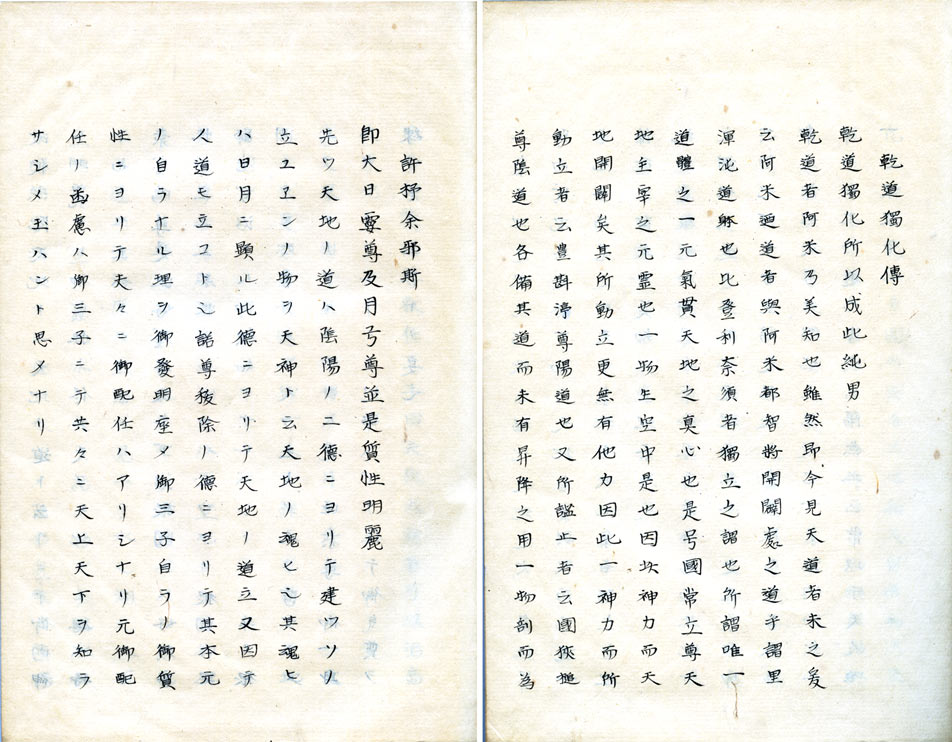 乾道獨化傳
乾道獨化所以成此純男
乾道者阿米乃美知也雖然即今見天道者未之爰
云阿米迺道者與阿米都智將開闢處之道乎謂里
渾沌道躰也比登利奈須者獨立之謂也所謂唯一
道體之一元氣貫天地之真心也是号國常立尊天
地主宰之元霊也一物生空中是也因此神力而天
地開闢矣其所動立更無有他力因此一神力而所
動立者云豊斟渟尊陽道也又所謚止者云國狹槌
尊陰道也各備其道而未有昇降之用一物剖而為
許抒余邪斯
即大日孁尊及月弓尊並是質性明麗
先ツ天地ノ道ハ陰陽ノ二德ニヨリテ建ツソリ
立ユヱンノ物ヲ天神ト云天地ノ魂ヒ也其魂ヒ
ハ日月ニ顕ル此德ニヨリテ天地ノ道立又因テ
人道モ立コト也諾尊秡除ノ德ニヨリテ其本元
ノ自ラナル理ヲ御發明座メ御三子自ラノ御質
性ニヨリテ夫々ニ御配任ハアリシナリ元御配
任ノ函慮ハ御三子ニテ共々ニ天上天下ヲ知ラ
サシメ玉ハント思メナリ